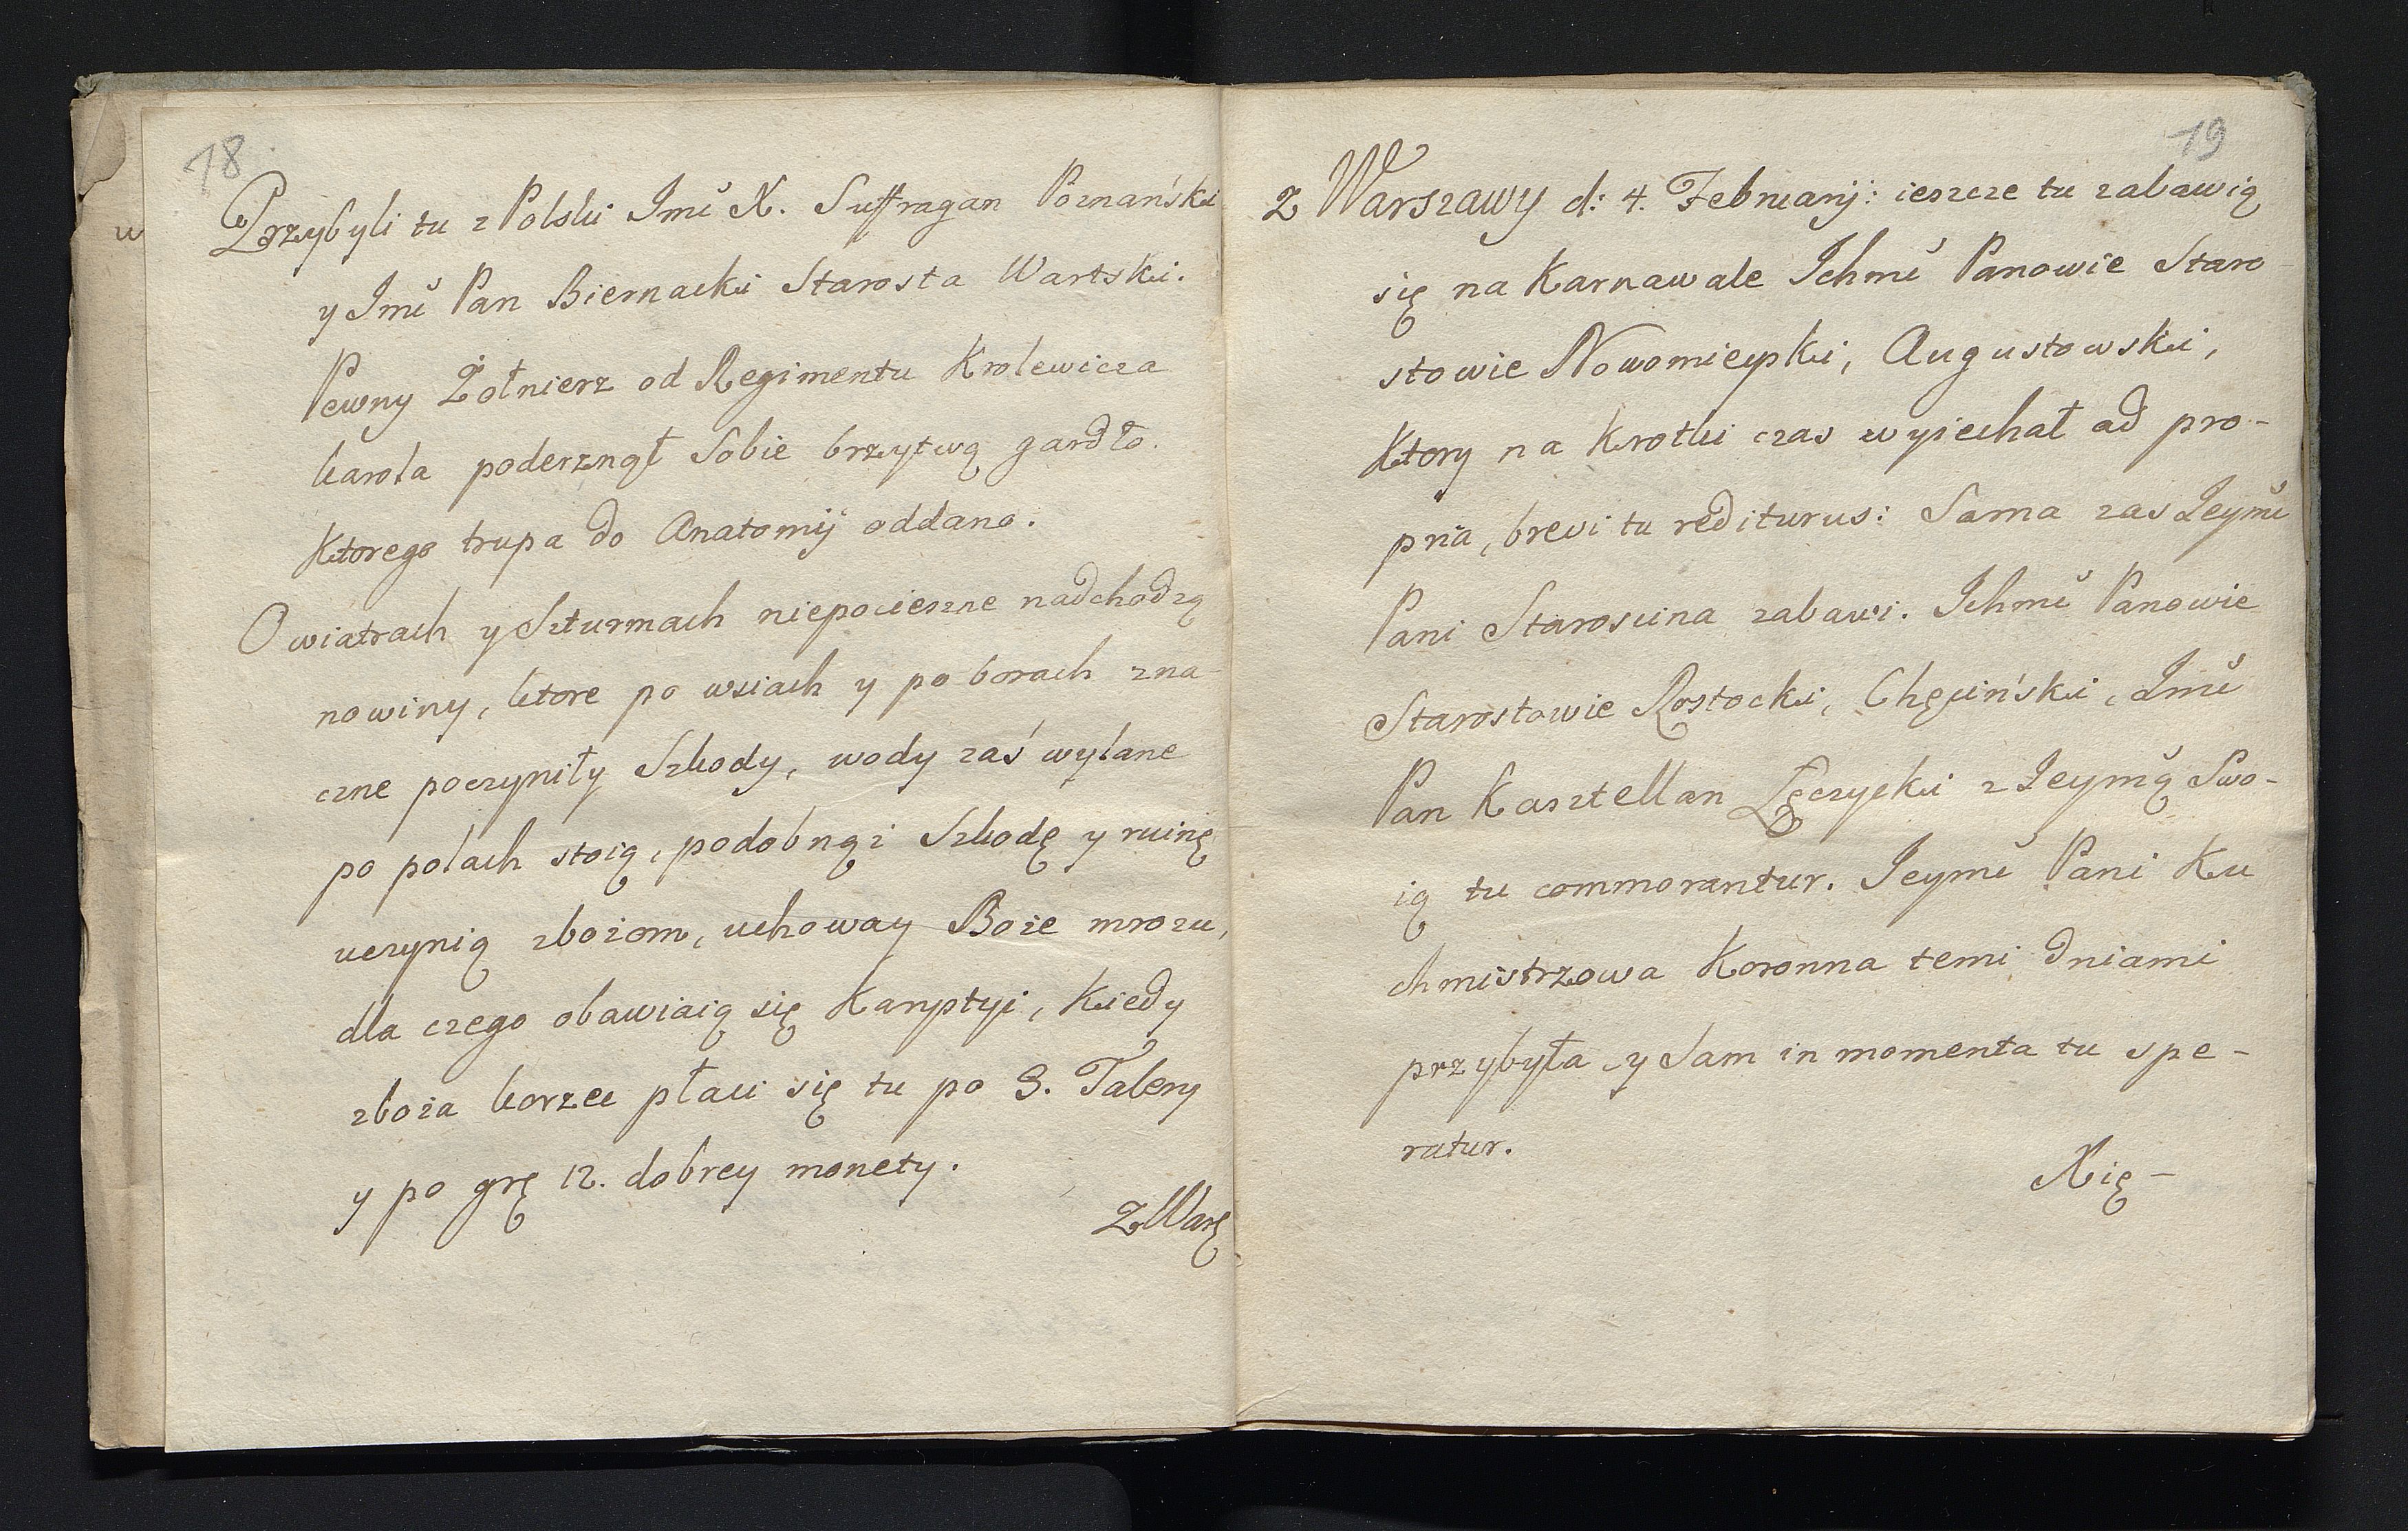 18
Przybyli tu z Polski Jmć X. Suffragan Poznański
y Jmć Pan Biernacki Starosta Wartski.
Pewny Żołnierz od Regimentu Krolewicza
karola poderznął Sobie brzytwą gardło.
Ktorego trupa do Anatomij oddano.
O wiatrach y Szturmach niepocieszne nadchodzą
nowiny, ktore po wsiach y po borach zna-
czne poczyniły Szkody, wody zaś wylane
po polach stoią, podobnąż Szkodę y ruinę
uczynią zbożom, uchoway Boże mrozu,
dla czego obawiaią się Karystyi, Kiedy
zboża korzec płaci się tu po 3. Talery
y po grę 12. dobrey monety.
Z Warę
w
19
Z Warszawy d: 4. Februarij: ieszcze tu zabawią
się na Karnawale Ichmć Panowie Staro
stowie Nowomieyski, Augustowski,
Ktory na Krotki czas wyiechał ad pro-
pria, brevi tu rediturus: Sama zas Jeymć
Pani Starościna zabawi. Ichmć Panowie
Starostowie Rostocki, Chęciński, Jmć
Pan Kasztellan Łęczycki z Jeymą Swo-
ią tu commorantur. Jeymć Pani Ku
chmistrzowa Koronna temi dniami
przybyła y Sam in momenta tu spe-
ratur.
Xię-